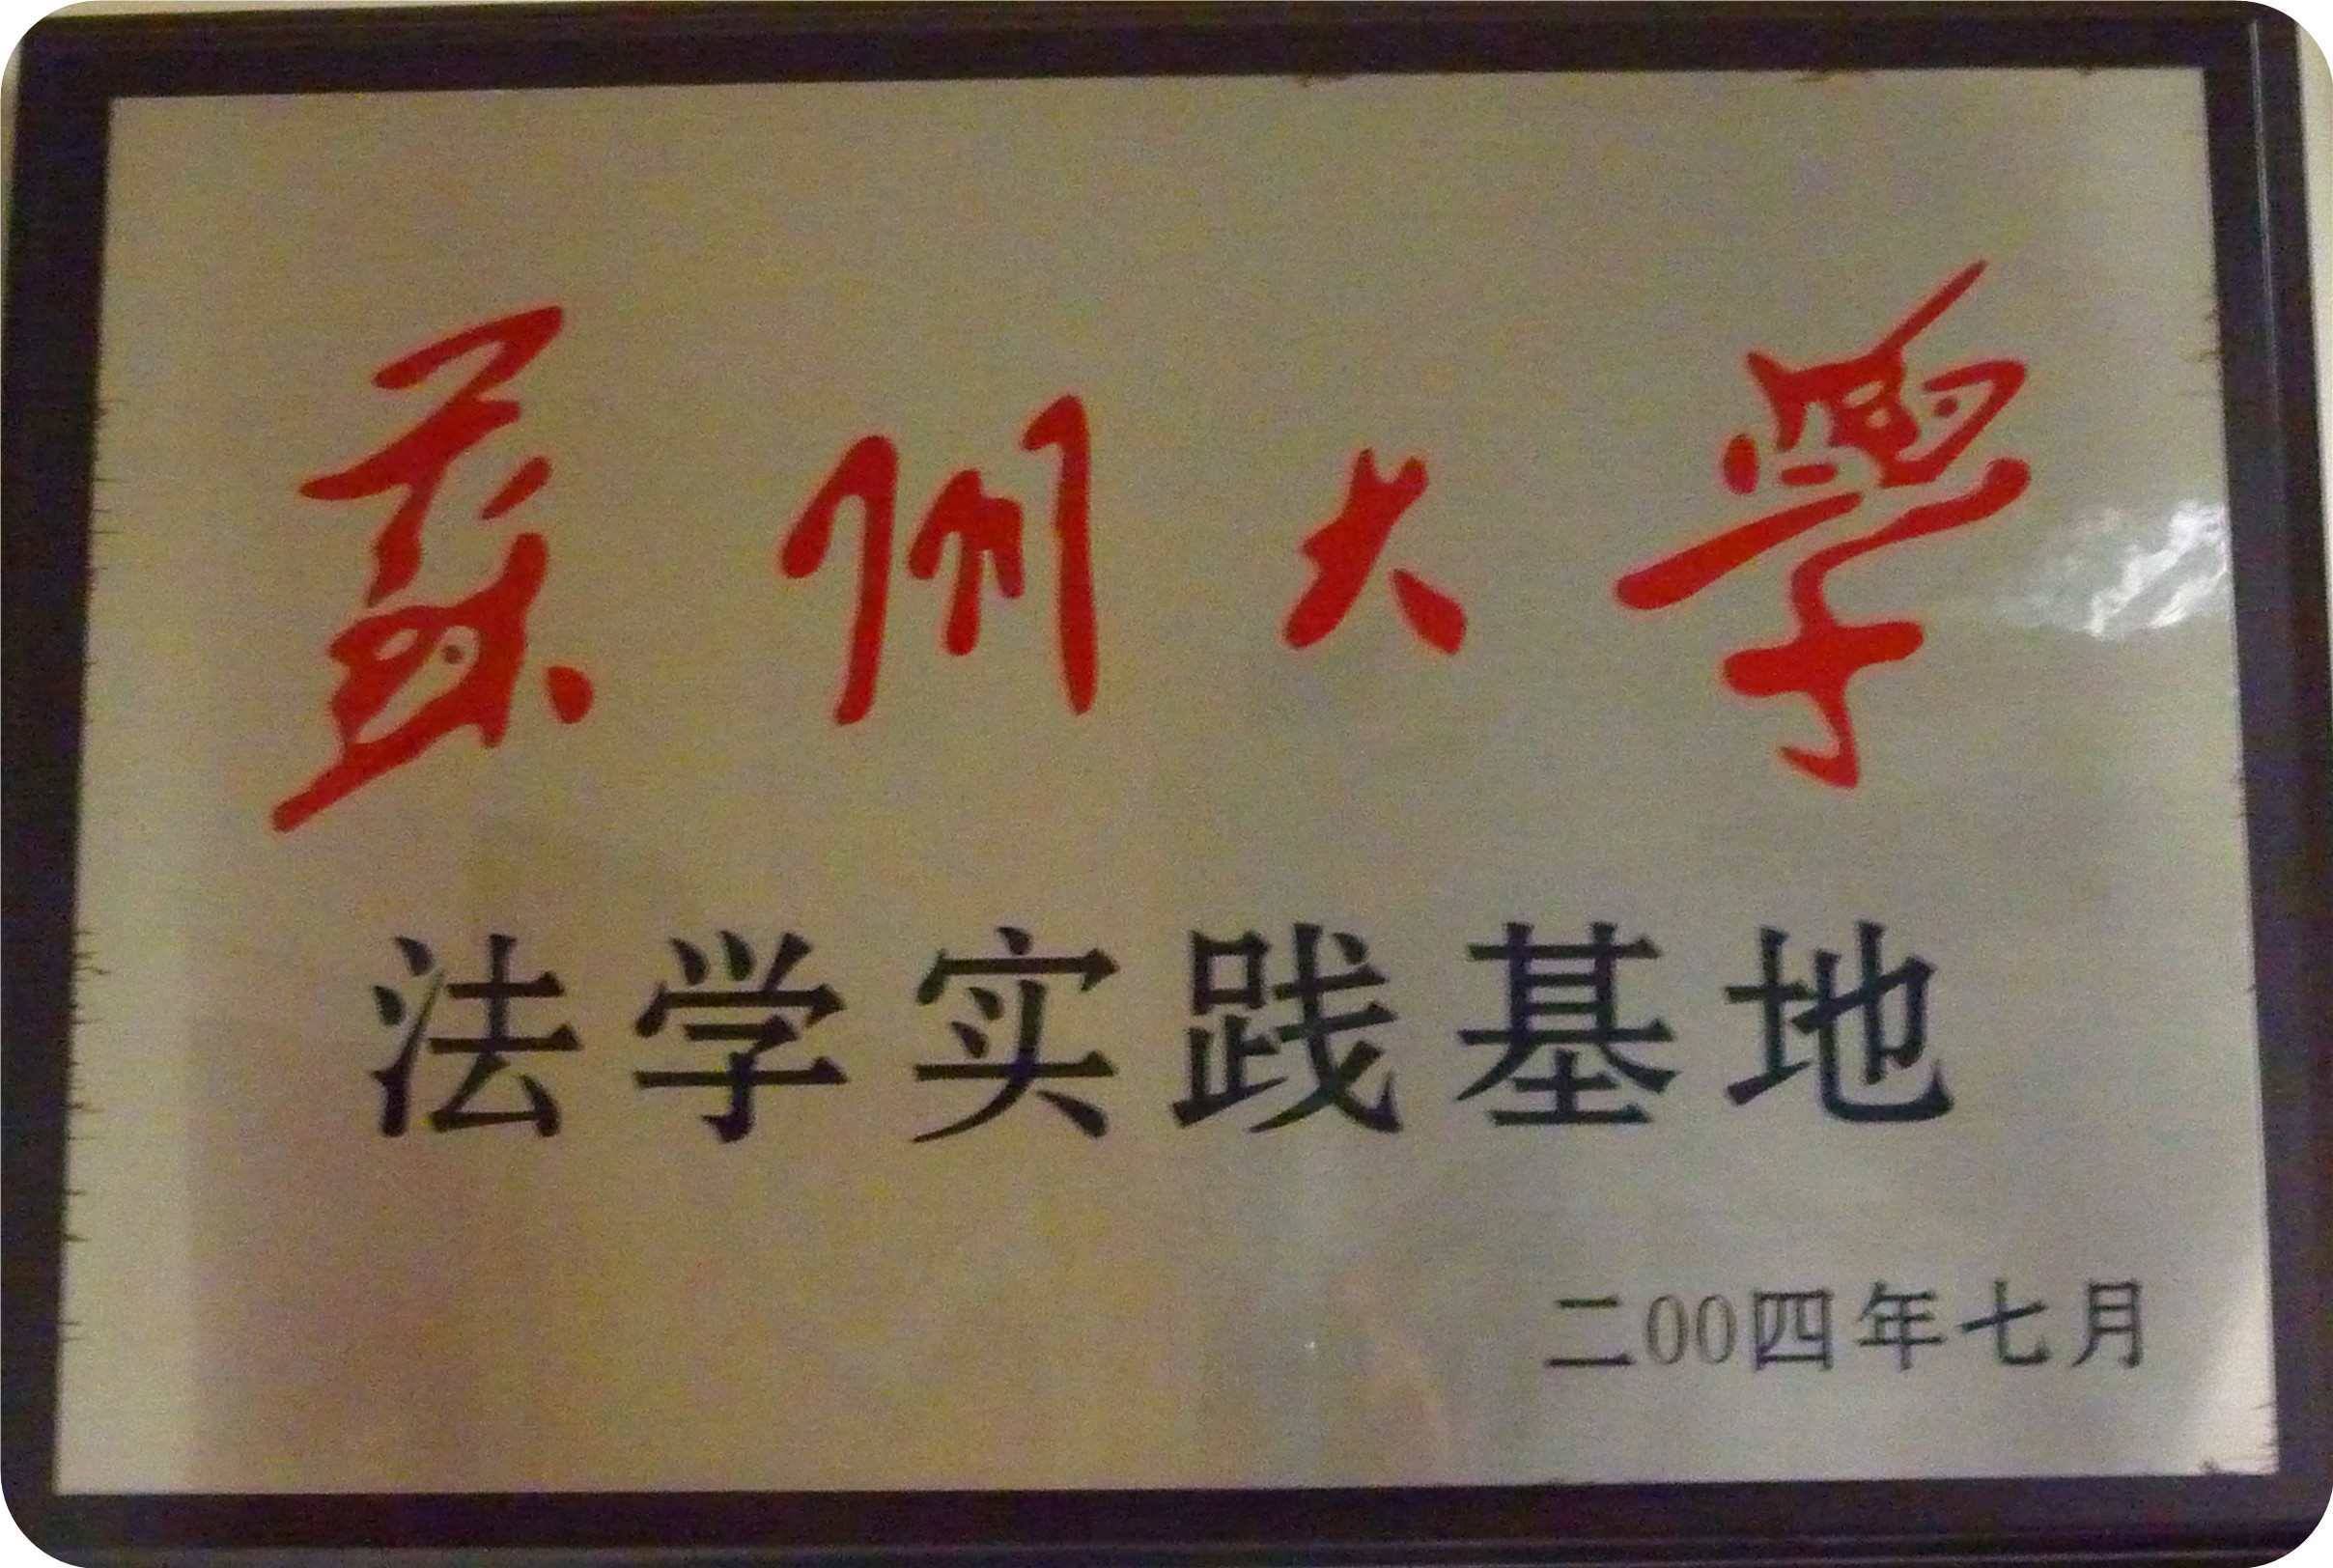 蘇州大學
法学实践基地
二00四年七月